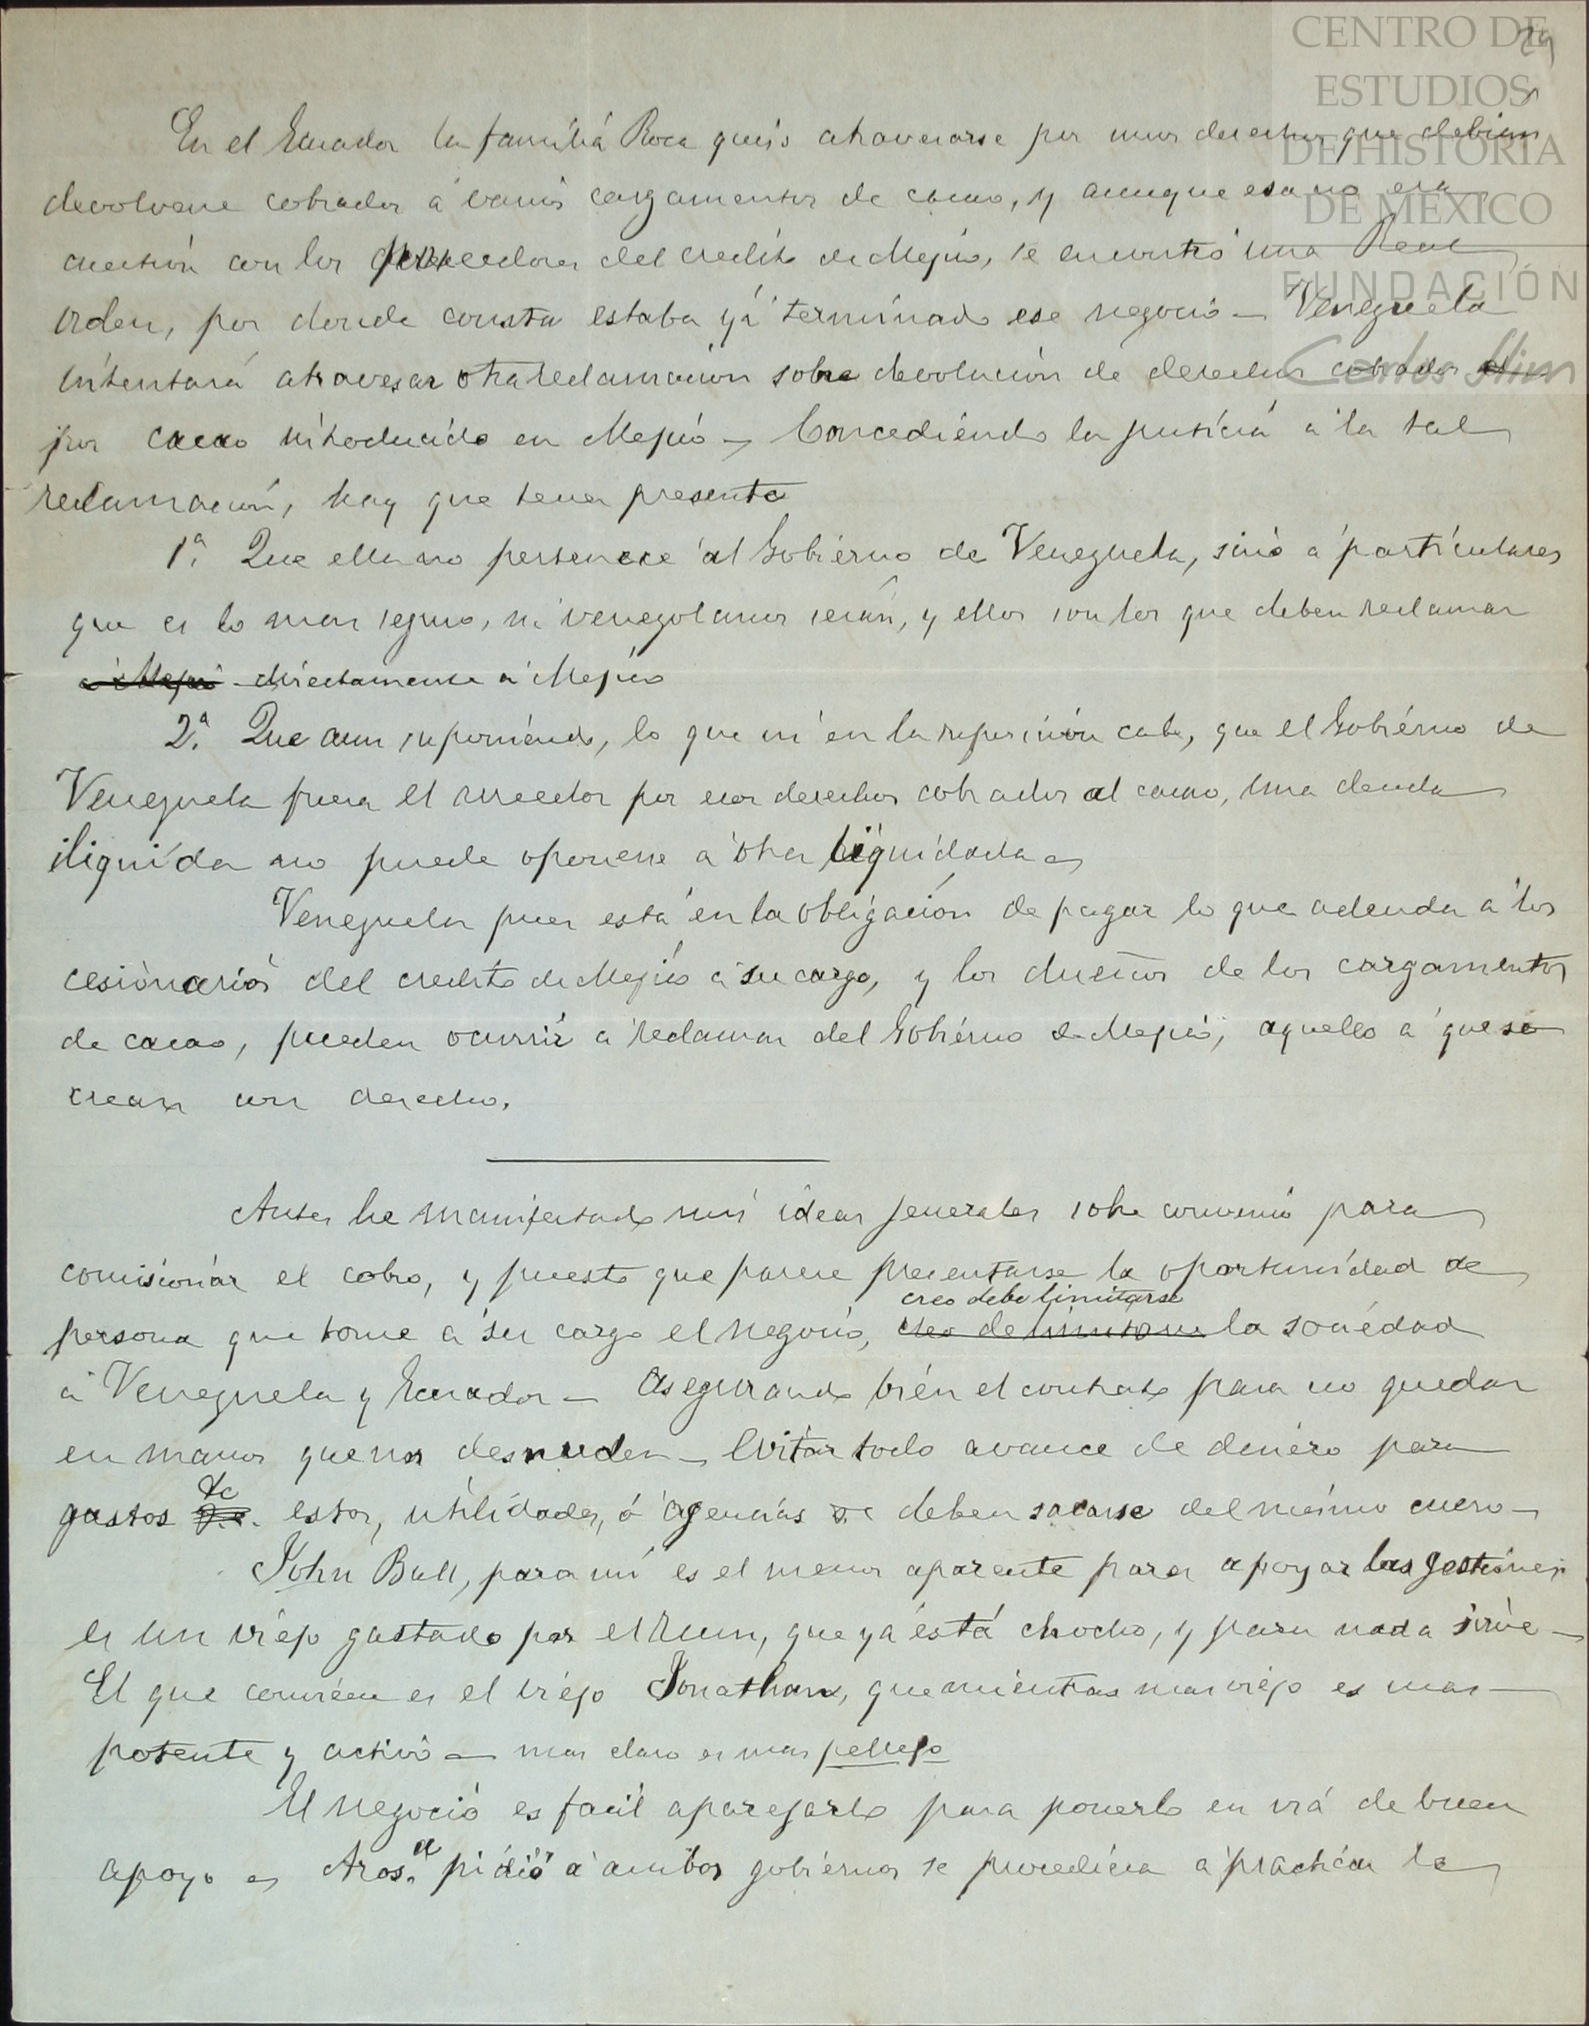 CENTRO DE
ESTUDIOS
DE HISTORIA
DE MÉXICO
FUNDACIÓN
Carlos Slim
29
En el Ecuador la familiá Roca quiso atraversarse por unos derechos que debian
devolverse cobrados á varios cargamentos de cacao, y aunque esa no era
cuestión con los poseedores del credito de Mejico, se encontró una Real
orden, por donde consta estaba yá terminado ese negocio — Venezuela
intentará atravesar otra reclamación sobre devolución de derechos cobrados
por cacao introducido en Mejico — Concediendo la justicia á la tal
reclamación, hay que tener presente
1ª. Que ella no pertenece al Gobierno de Venezuela, sino á particulares
que es lo mas seguro, ni venezolanos serán, y ellos son los que deben reclamar
a Mejico directamente á Mejico
2ª. Que aun suponiendo, lo que ni en la suposición cabe, que el Gobierno de
Venezuela fuera el acreedor por esos derechos cobrados al cacao, una deuda
iliquida no puede oponerse á otra liquidada —
Venezuela pues está en la obligación de pagar lo que adeuda á los
cesionarios del credito de Mejico á su cargo, y los dueños de los cargamentos
de cacao, pueden ocurrir á reclamar del Gobierno de Mejico, aquello á que se
crean con derecho.
Antes he manifestado mis ideas generales sobre convenio para
comisionar el cobro, y puesto que parece presentarse la oportunidad de
creo debe limitarse
persona que tome á su cargo el negocio, la sociedad
á Venezuela y Ecuador — Asegurando bién el contrato para no quedar
en manos que nos desnuden — Evitar todo avance de dinero para
gastos &c estos, utilidades, ó agencias deben sacarse del mismo cuero —
John Bull, para mi es el menos aparente para apoyar las gestiones
es un viejo gastado por el Rum, que yá está chocho, y para nada sirve —
El que conviene es el viejo Jonathan, que mientras mas viejo es mas —
potente y activo — mas claro es mas pellejo
El negoció es facil aparejarlo para ponerlo en viá de buen
apoyo — Aros.a pidió á ambos gobiernos se procediera á practicar la